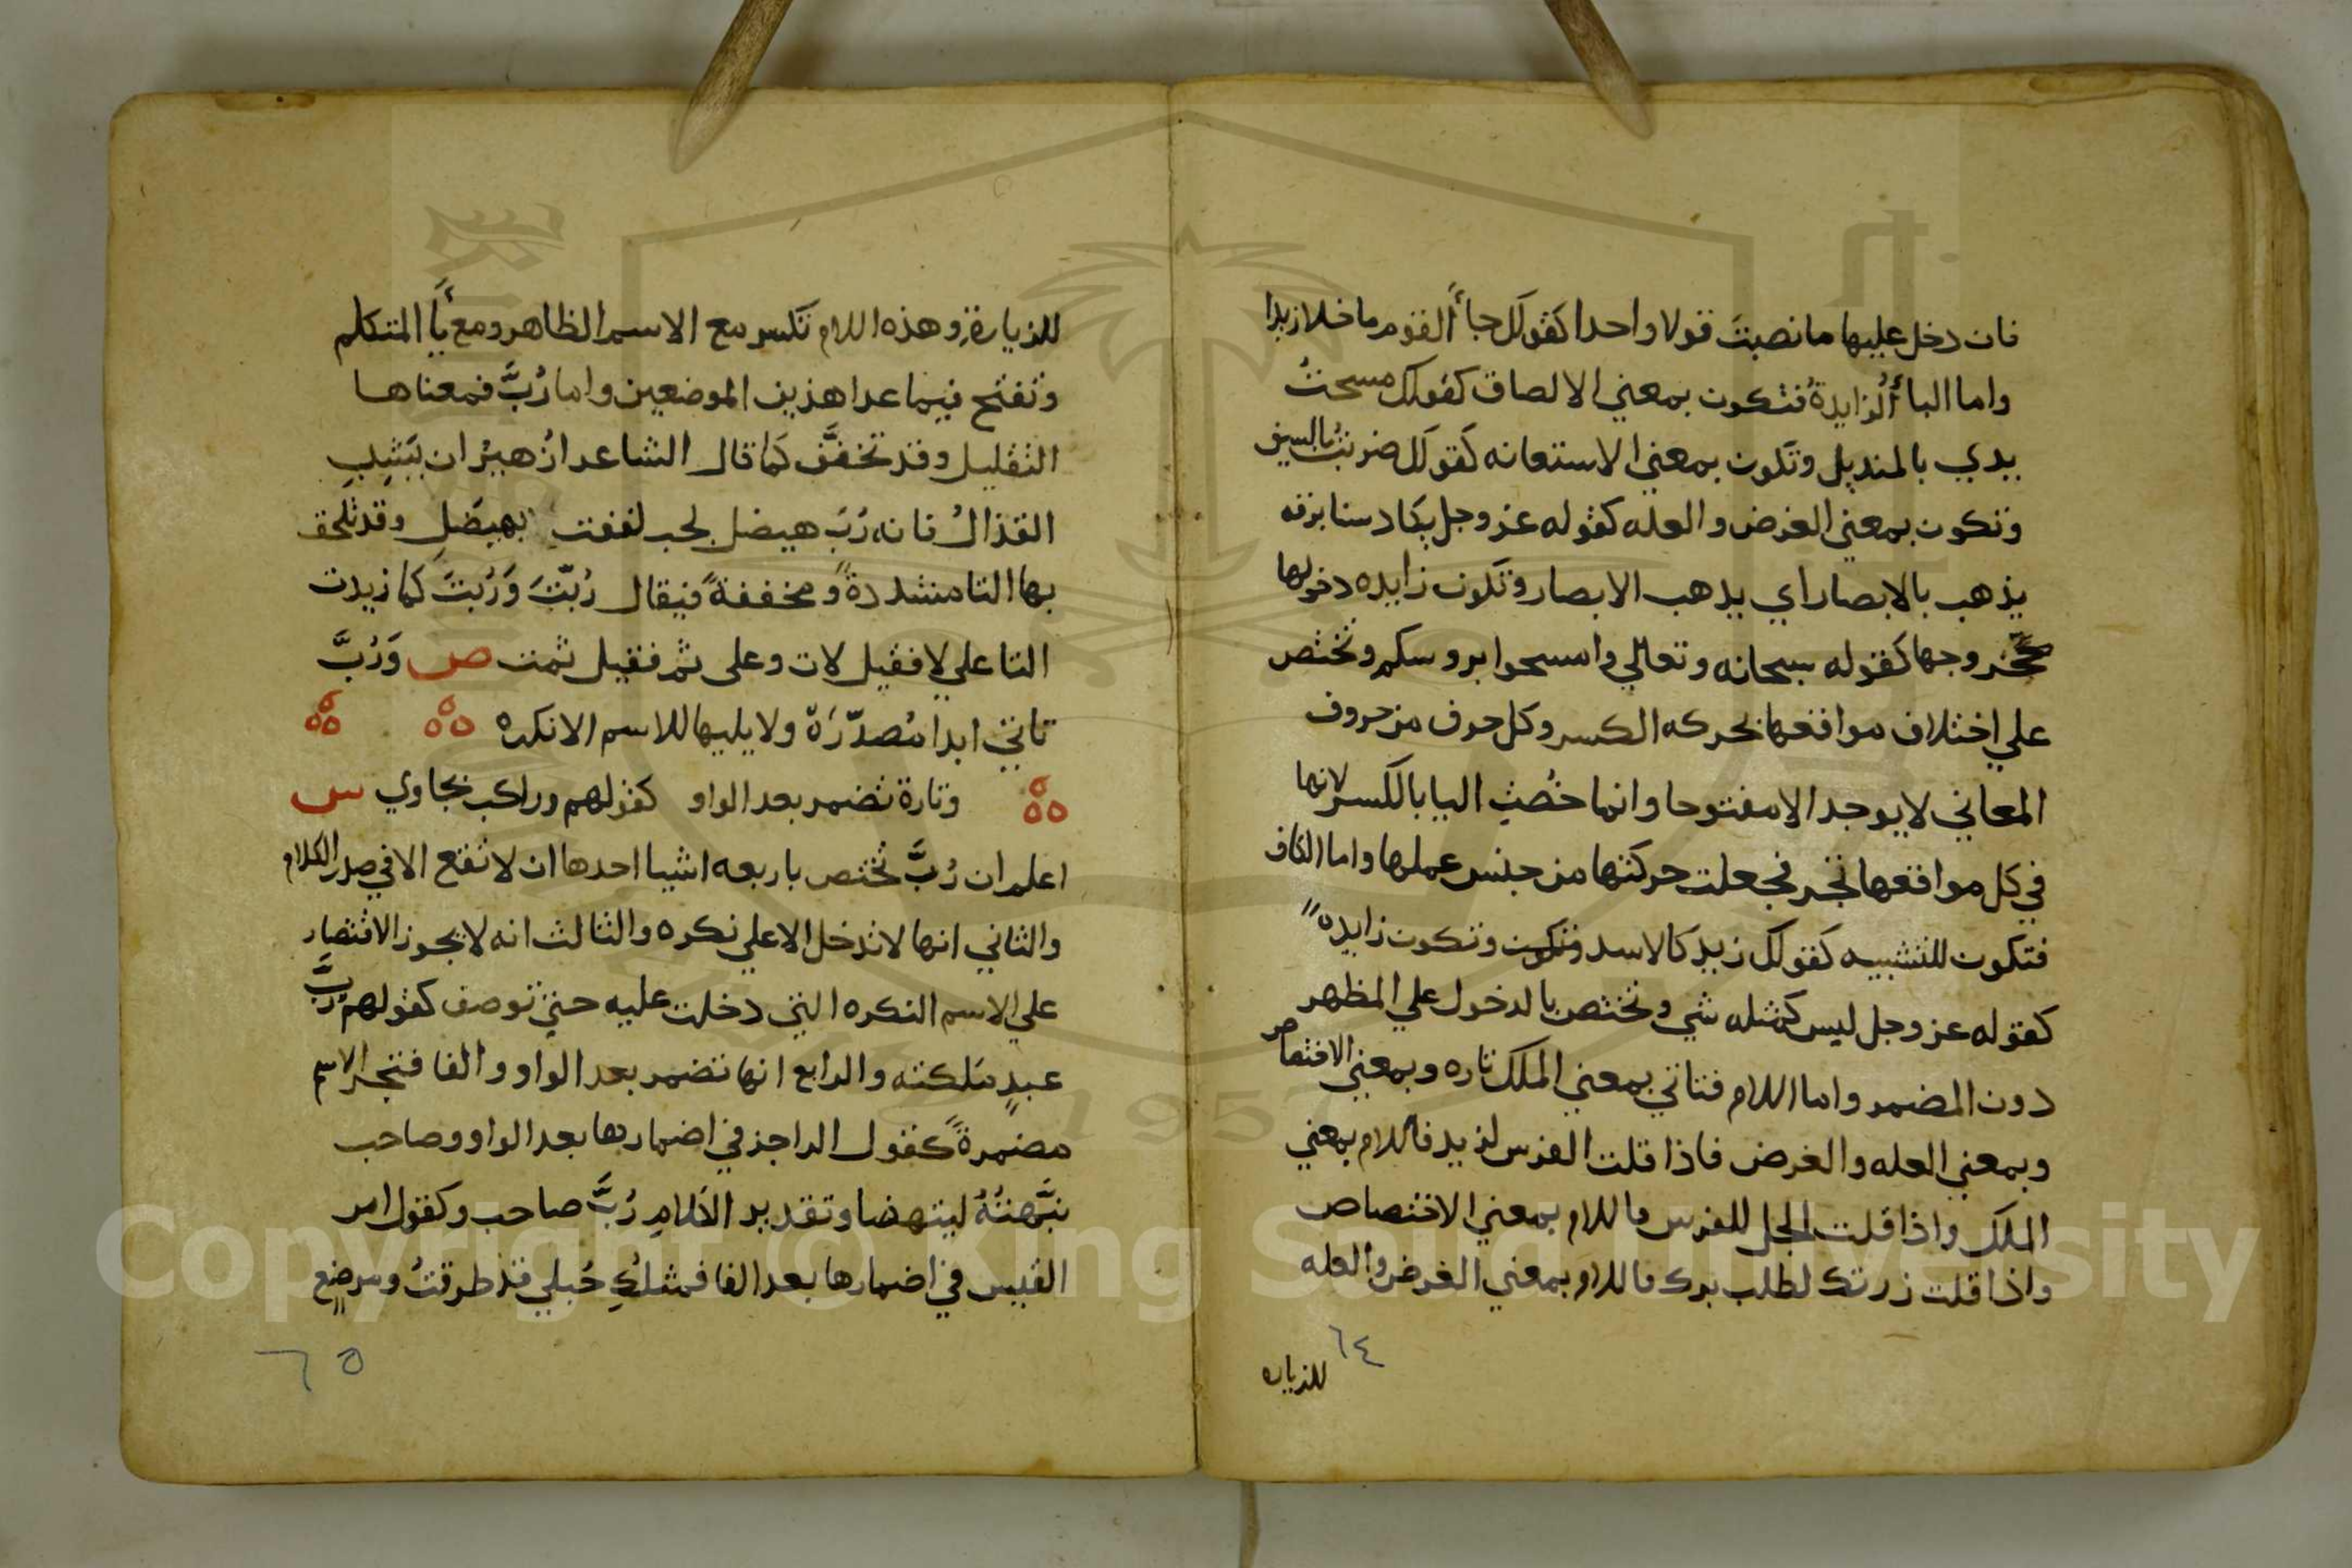 فان دخل عليها ما نصبتَ قولا واحدا كقولك جاأ القوم ما خلا زيدا
واما الباأ الزايدةُ فتكون بمعني الالصاق كقولك مسحتُ
يدي بالمنديل وتكون بمعني الاستعانه كقولك ضربتُ بالسيف
وتكون بمعني الغرض والعله كقوله عز وجل يكاد سنا برقه
يذهب بالابصار اي يذهب الابصار وتكون زايده دخولها
كخروجها كقوله سبحانه وتعالي وامسحوا بروسكم وتختص
علي اختلاف مواقعها بحركه الكسر وكل حرف من حروف
المعاني لا يوجد الا مفتوحا وانما خُصتِ البا بالكسر لانها
في كل مواقعها تجر فجعلت حركتها من جنس عملها واما الكاف
فتكون للتشبيه كقولك زيد كالاسد وتكون وتكون زايده
كقوله عز وجل ليس كمثله شي وتختص بالدخول علي المظهر
دون المضمر واما اللام فتاتي بمعني الملك تاره وبمعني الاختصاص
وبمعني العله والغرض فاذا قلت الفرس لزيد فاللام بمعني
الملك واذا قلت الجل للفرس فاللام بمعني الاختصاص
واذا قلت زرتك لطلب برك فاللام بمعني الغرض والعله
٦٤
للزياره
للزيارةِ وهذه اللام تكسر مع الاسم الظاهر ومع ياَّ المتكلم
وتفتح فيما عدا هذين الموضعين واما رُبَّ فمعناها
التقليل وقد تخفَّف كما قال الشاعر ازُهيرُ ان يَشِيبِ
القذالُ فانه رُبَ هيضل لجب لففت بهيضَلِ وقد تلحق
بها التا مشددةً ومخففةً فيقال رُبّتَ وَرُبتَ كما زيدت
التا علي لا فقيل لات وعلى ثم فقيل ثمت ص وَرُبَّ
تاتي ابدا مُصدّرَة ولا يليها للاسم الا نكره
وتارة تضمر بعد الواو كقولهم وراكب بجاوي س
اعلم ان رُبَّ تختص باربعه اشيا احدها ان لا تقع الا في صدر الكلام
والثاني انها لا تدخل الا علي نكره والثالث انه لا يجوز الاقتصار
علي الاسم النكره التي دخلت عليه حتي توصف كقولهم رُبَّ
عبدٍ ملكته والرابع انها تضمر بعد الواو والفا فتجر الاسم
مضمرةً كقول الراجز في اضمارها بعد الواو وصاحب
نبَّهتُهُ لينهضا وتقدير الكلام رُبَّ صاحب وكقول امر
القيس في اضمارها بعد الفا فمثلُكِ حُبلي قد طرقتُ ومرضعٍ
٦٥
Copyright © King Saud University
1957